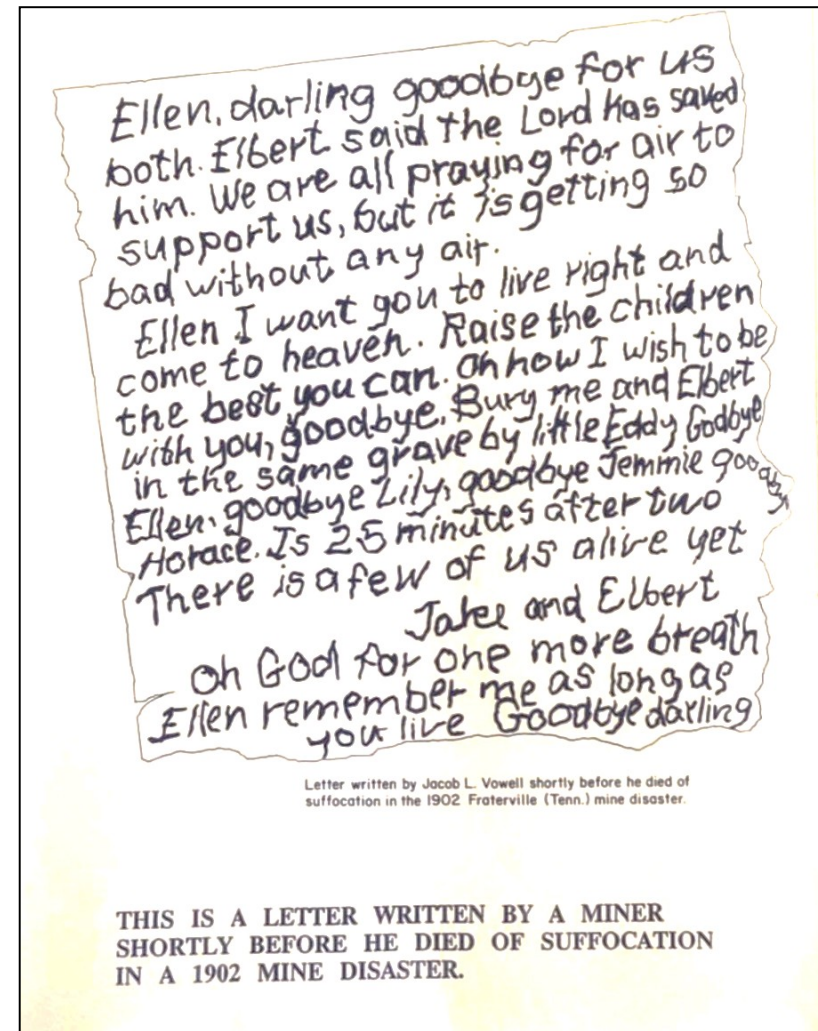 Ellen, darling goodbye for us
both. Elbert said the Lord has saved
him. We are all praying for air to
support us, but it is getting so
bad without any air.
Ellen I want you to live right and
come to heaven. Raise the children
the best you can. Oh how I wish to be
with you, goodbye. Bury me and Elbert
in the same grave by little Eddy Godbye
Ellen, goodbye Lily, goodbye Jemmie goodby
Horace. Is 25 minutes after two
There is a few of us alive yet
Jake and Elbert
Oh God for one more breath
Ellen remember me as long as
you live Goodbye darling
Letter written by Jacob L. Vowell shortly before he died of
suffocation in the 1902 Fraterville (Tenn.) mine disaster.
THIS IS A LETTER WRITTEN BY A MINER
SHORTLY BEFORE HE DIED OF SUFFOCATION
IN A 1902 MINE DISASTER.